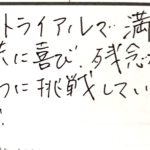 トライアルで満
に喜び、残念
つに挑戦してい